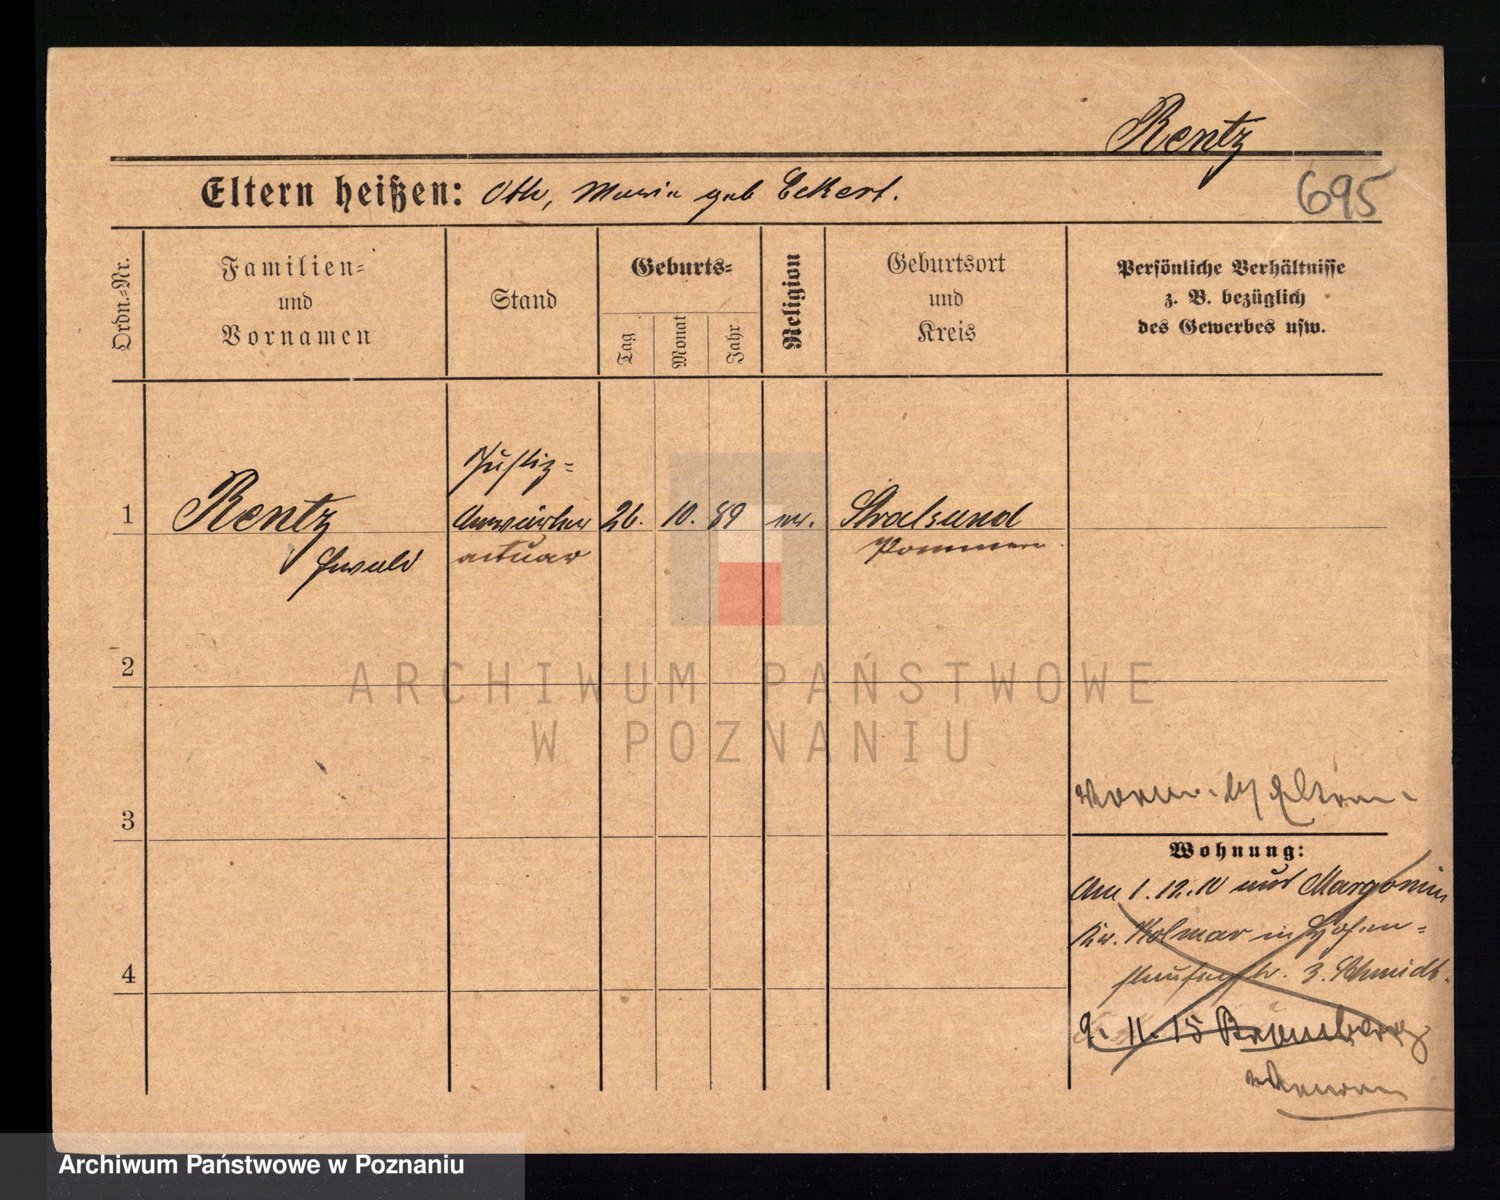 Rentz
Eltern heißen: Otto, Maria geb Eckert.
695
Ordn.-Nr.
Familien-
und
Vornamen
Stand
Geburts-
Tag
Monat
Jahr
Religion
Geburtsort
und
Kreis
Persönliche Verhältnisse
z. B. bezüglich
des Gewerbes usw.
Justiz-
1 Rentz Anwärter 26. 10. 89 ev. Stralsund
Ewald actuar Pommern
2
3
4
Eltern.
Wohnung:
Am 1.12.10 aus Margonin
Kr. Kolmar in Hohen-
staufenstr. 3. Schmidt.
9. 11. 15 Bromberg
ARCHIWUM PAŃSTWOWE
W POZNANIU
Archiwum Państwowe w Poznaniu